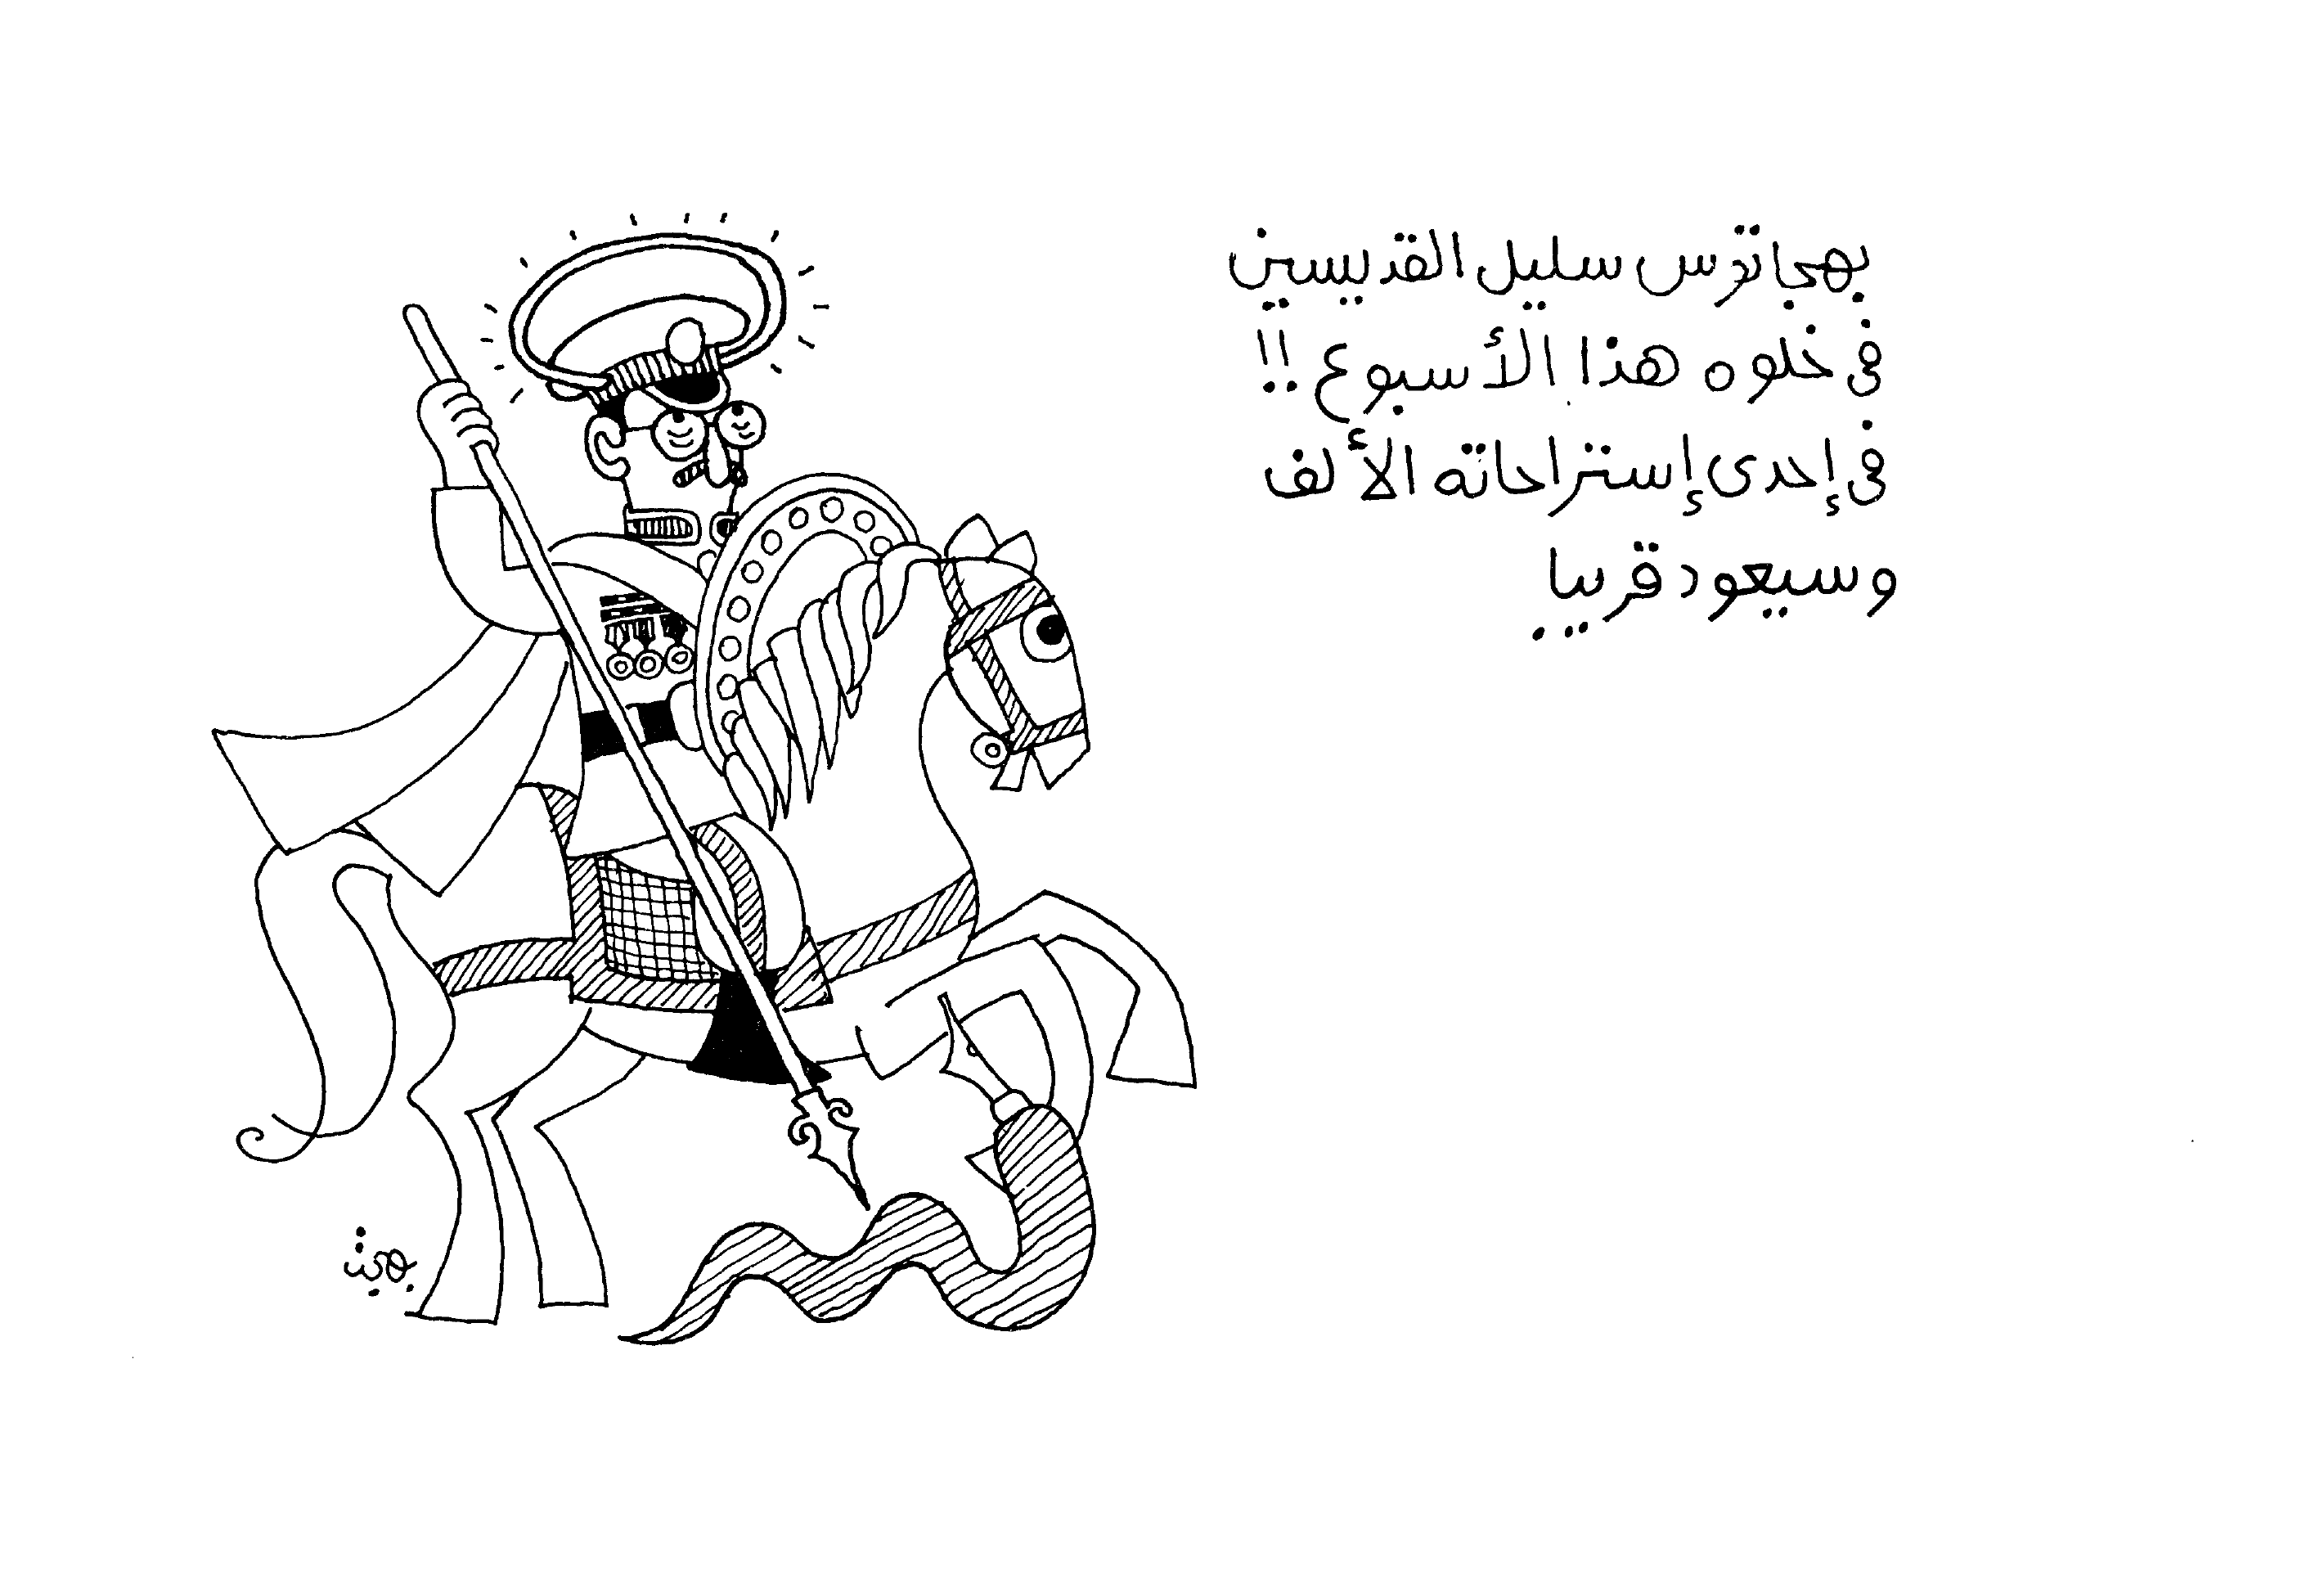 بهجاتوس سليل القديسين
في خلوه هذا الأسبوع !!
في إحدى إستراحاته الألف
وسيعود قريبا ..
بهجت